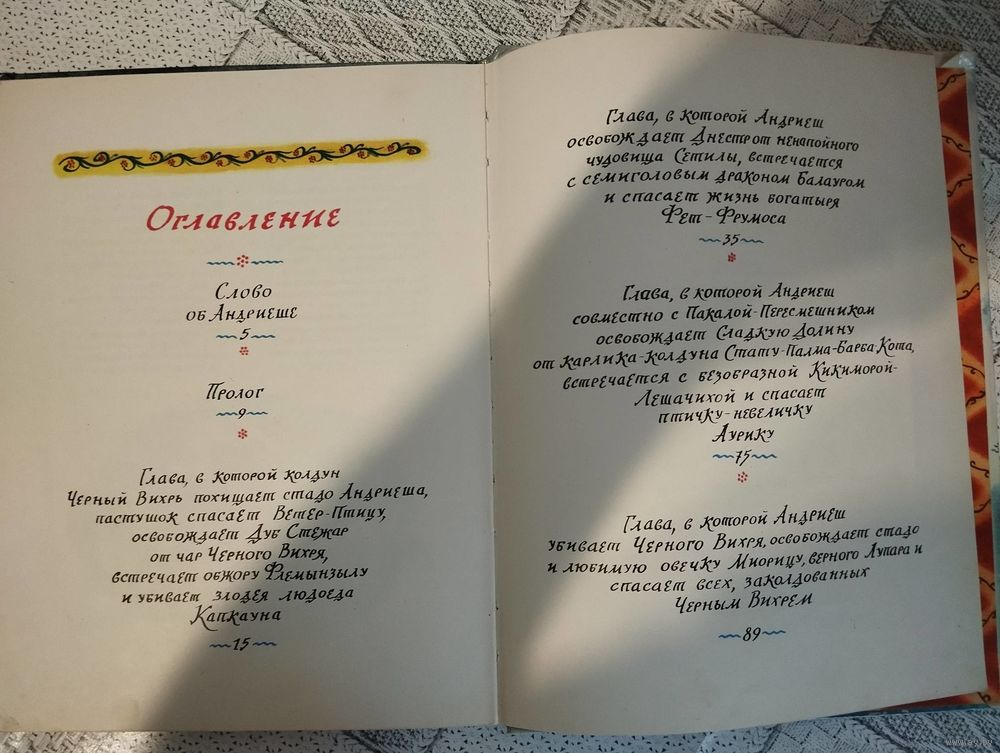 Оглавление
Слово
об Андриеше
5
Пролог
9
Глава, в которой колдун
Черный Вихрь похищает стадо Андриеша,
пастушок спасает Ветер-Птицу,
освобождает Дуб Стежар
от чар Черного Вихря,
встречает обжору Флемынзылу
и убивает злодея людоеда
Капкауна
15
Глава, в которой Андриеш
освобождает Днестр от ненапойного
чудовища Сетилы, встречается
с семиголовым драконом Балауром
и спасает жизнь богатыря
Фет-Фрумоса
35
Глава, в которой Андриеш
совместно с Пакалой-Пересмешником
освобождает Сладкую Долину
от карлика-колдуна Стату-Палма-Барба Кота,
встречается с безобразной Кикиморой-
Лешачихой и спасает
птичку-невеличку
Аурику
75
Глава, в которой Андриеш
убивает Черного Вихря, освобождает стадо
и любимую овечку Миорицу, верного Лупара и
спасает всех, заколдованных
Черным Вихрем
89